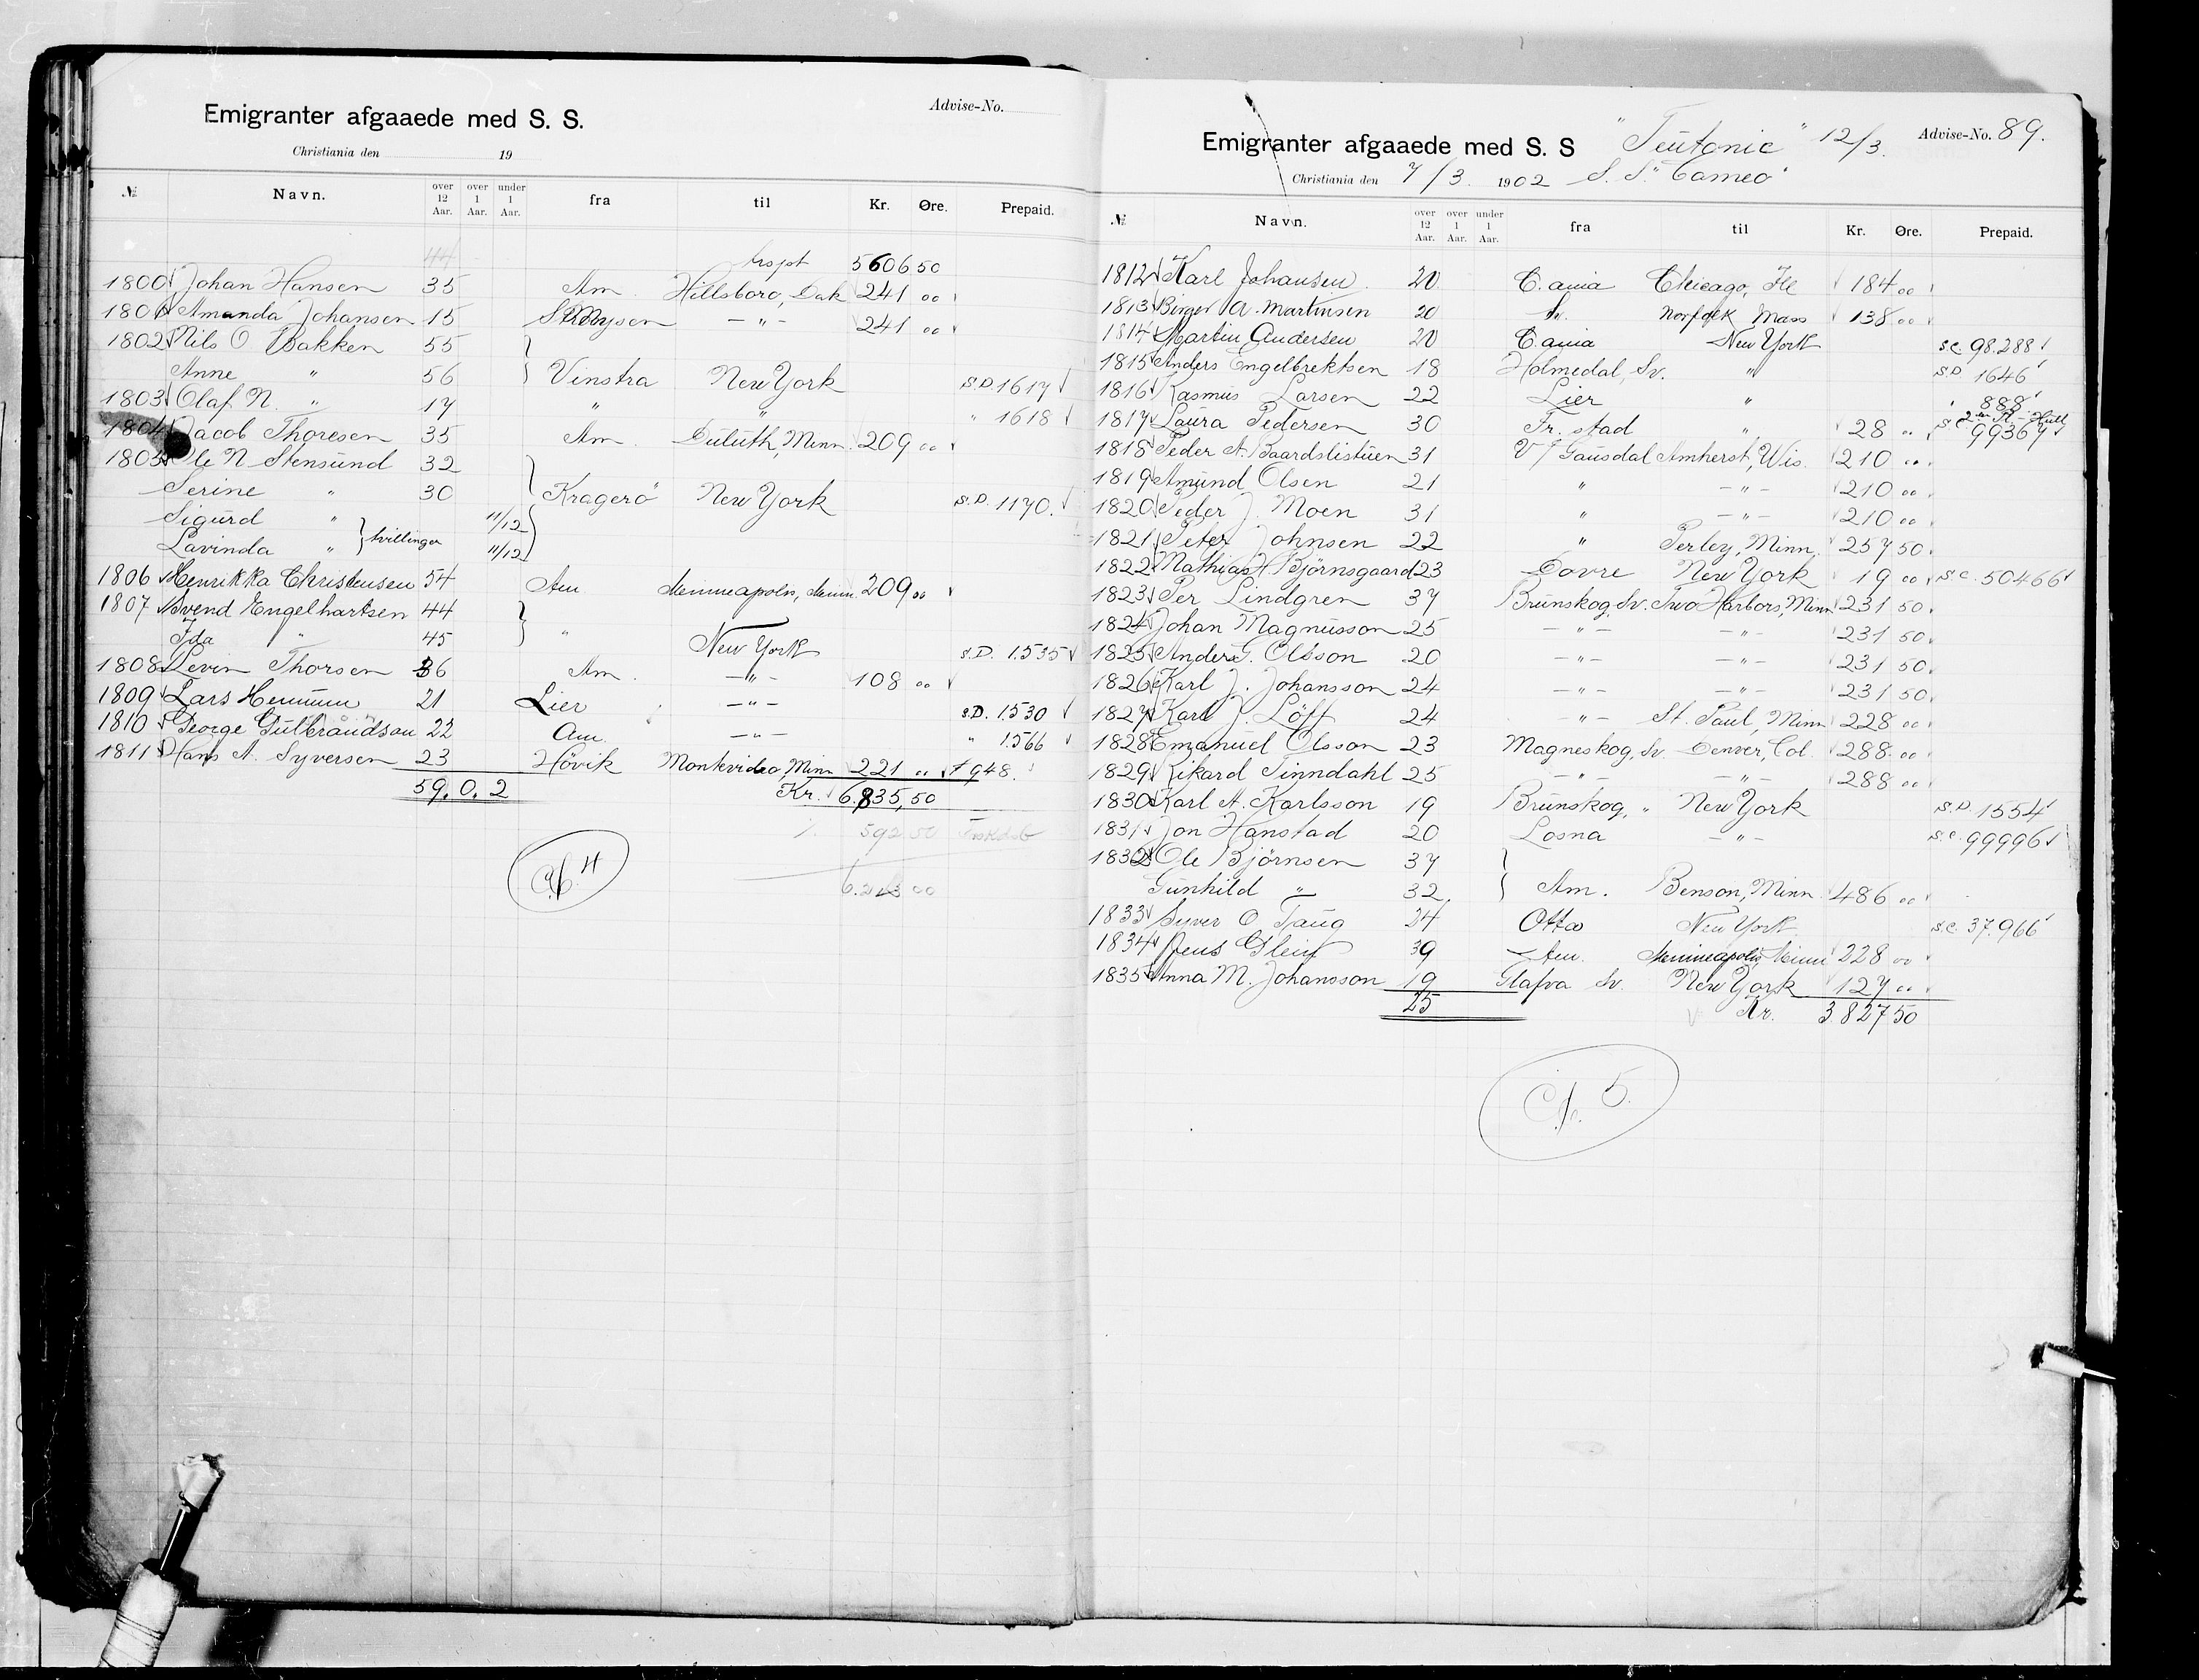 Emigranter afgaaede med S. S.
Advise-No.
Christiania den 19
№ Navn. over 12 Aar. over 1 Aar. under 1 Aar. fra til Kr. Øre. Prepaid.
trspt 5606 50
1800 Johan Hansen 35 Am. Hillsboro, Dak 241 00
1801 Amanda Johansen 15 — " — 241 00
1802 Nils O Bakken 55
Anne " 56 } Vinstra New York S.D. 1617
1803 Olaf N. " 17 " " " 1618
1804 Jacob Thoresen 35 Am. Duluth, Minn. 209 00
1805 Ole N. Stensund 32
Serine " 30 } Kragerö New York S.D. 1170.
Sigurd " 11/12
Lavinda " } tvillinger 11/12
1806 Henrikka Christensen 54 Am Minneapolis, Minn. 209 00
1807 Svend Engelhartsen 44
Ida " 45 } " New York S.D. 1535
1808 Levin Thorsen 36 Am. — " — 108 00
1809 Lars Hennum 21 Lier — " — S.D. 1530
1810 George Gulbrandson 22 Am. — " — " 1566
1811 Hans A. Syversen 23 Hövik Montevideo, Minn 221 " 7948.
59. 0. 2 Kr. 6.835,50
592 50
6.243 00
4
Emigranter afgaaede med S. S "Teutonic" 12/3. Advise-No. 89.
Christiania den 7/3 1902 S. S. "Cameo"
№ Navn. over 12 Aar. over 1 Aar. under 1 Aar. fra til Kr. Øre. Prepaid.
1812 Karl Johansen 20 C.ania Chicago, Ill 184 00
1813 Birger A. Martinsen 20 Norfolk Mass 138 00
1814 Martin Andersen 20 C.ania New York S.C. 98.288
1815 Anders Engelbrektsen 18 Holmedal, Sv. " S.D 1646
1816 Rasmus Larsen 22 Lier " " 888
1817 Laura Pedersen 30 Fr. stad " 28 " S.C. 99367
1818 Peder A. Baardslistuen 31 V/ Gausdal Amherst, Wis. 210 "
1819 Amund Olsen 21 " — " — 210 00
1820 Peder J. Moen 31 " — " — 210 00
1821 Peter Johnsen 22 " Perley, Minn. 257 50
1822 Mathias H Björnsgaard 23 Dovre New York 19 00 S.C. 50466
1823 Per Lindgren 37 Brunskog, Sv. Two Harbors, Minn 231 50
1824 Johan Magnusson 25 — " — — " — 231 50
1825 Anders G. Olsson 20 — " — — " — 231 50
1826 Karl J. Johansson 24 — " — — " — 231 50
1827 Karl J. Löff 24 — " — St. Paul, Minn 228 00
1828 Emanuel Olsson 23 Magneskog, Sv. Denver, Col. 288 00
1829 Rikard Tinndahl 25 — " — — " — 288 00
1830 Karl A. Karlsson 19 Brunskog, " New York S.D. 1554
1831 Jon Hanstad 20 Losna — " — S.C. 99996
1832 Ole Björnsen 37
Gunhild " 32 } Am. Benson, Minn 486 00
1833 Syver O Taug 24 Otta New York S.C. 37.966
1834 Jens Gleit 39 Am. Minneapolis, Minn 228 00
1835 Anna M. Johansson 19 Glafva Sv. New York 127 00
25 Kr. 3.827 50
5.